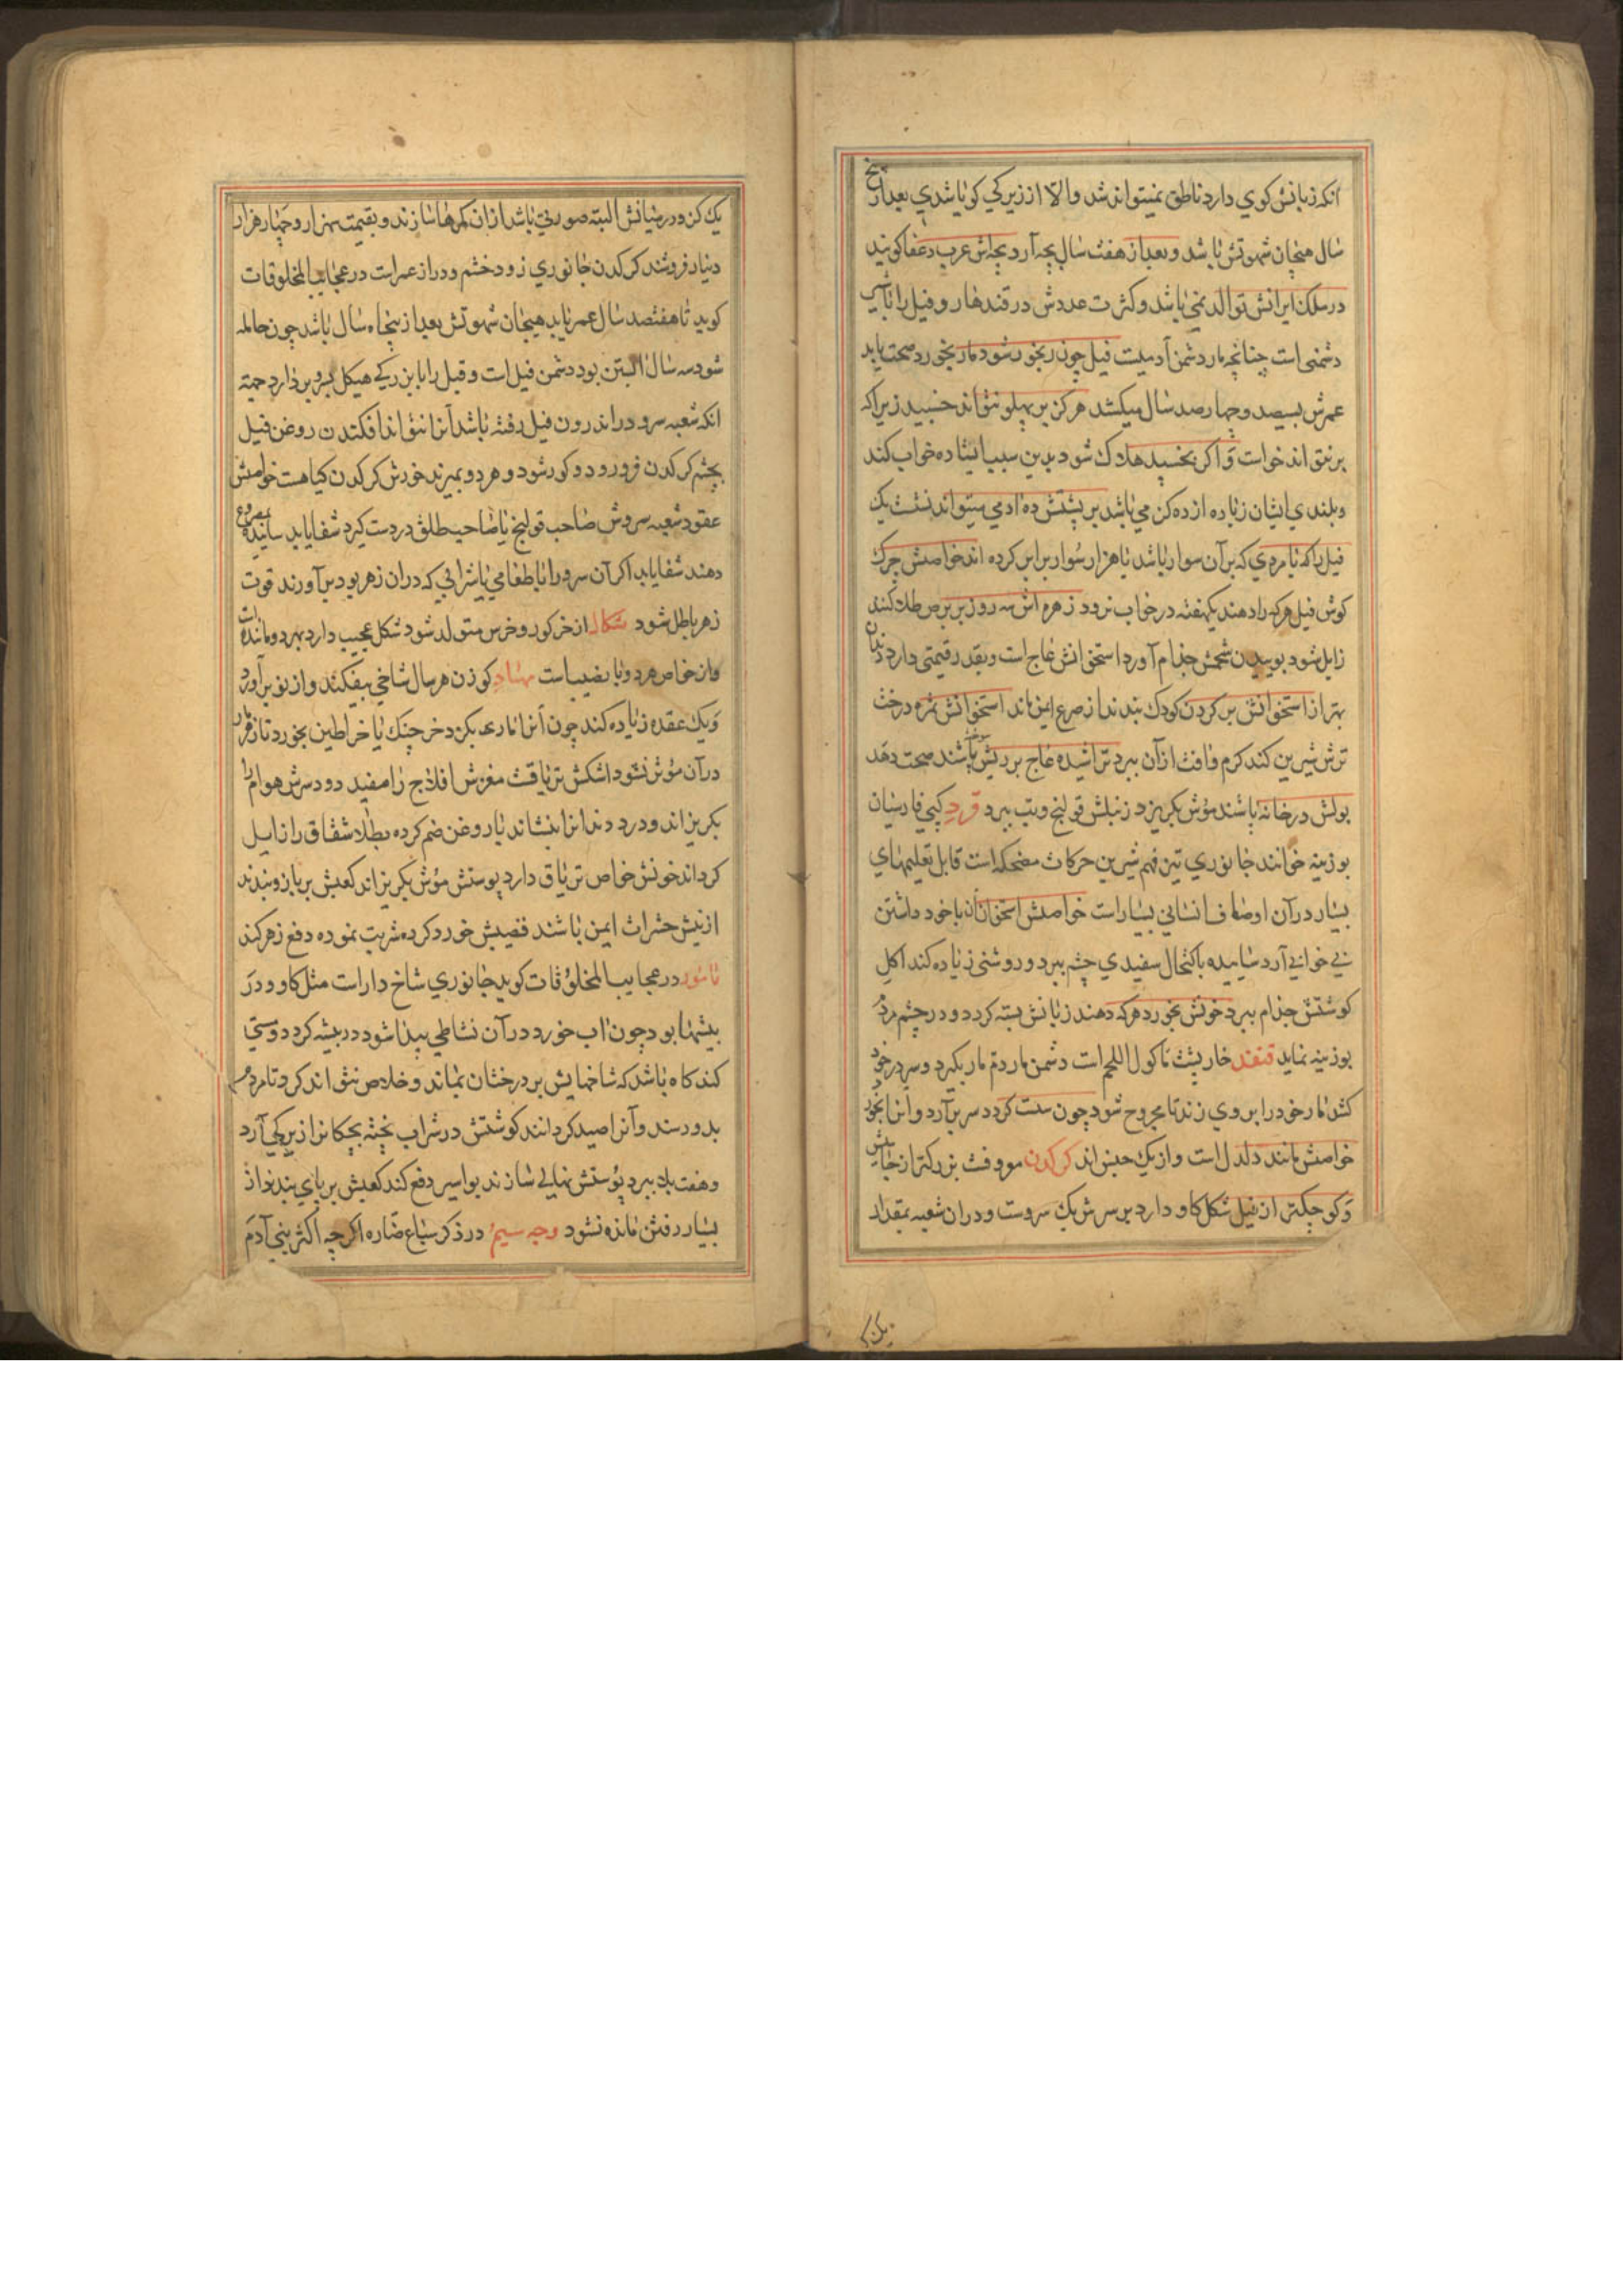 انکه زبانش کوی دارد ناطق نمیتواند شد والّا از زیرکی کویا شدی بعد از پنج
سال هیجان شهوتش باشد و بعد از هفت سال بچه آرد بچه اش عرب دغفا کویند
در ملک ایرانش توالد نمی باشد و کثرت عددش در قندهار و فیل را با شیر
دشمنی است چنانچه مار دشمن آدمیست فیل چون رنجور شود مار بخورد صحت یابد
عمرش بسیصد و چهارصد سال میکشد هرکز بر پهلو نتواند خسبید زیرا که
بر نتواند خواست و اکر بخسبد هلاک شود بدین سبب ایستاده خواب کند
و بلندی ایشان زیاده از ده کز می باشد بر پشتش ده ادمی میتواند نشست یک
فیل را که با مردی که بر آن سوار باشد با هزار سوار برابر کرده اند خواصش چرک
کوش فیل هر که را دهند یکهفته در خواب نرود زهره اش سه روز بر برص طلا کنند
زایل شود بوییدن شحمش جذام آورد استخوانش عاج است و بقدر قیمتی دارد دندان
بهتر از استخوانش بر کردن کودک بندند از صرع ایمن ماند استخوانش ثمره درخت
ترش شیرین کند کرم و افت از آن ببرد تراشیده عاج بر ریش پاشند صحت دهد
بولش در خانه پاشند موش بکریزد زبلش قولنج و تب ببرد قرد کپی فارسیان
بوزینه خوانند جانوری تیز فهم شیرین حرکات مضحکه است قابل تعلیمهای
بسیار در آن اوصاف انسانی بسیار است خواصش استخوانش با خود داشتن
بی خوابی آرد ساییده باکتحال سفیدی چشم ببرد و روشنی زیاده کند اکل
کوشتش جذام ببرد خونش بخورد هر که دهند زبانش بسته کردد و در چشم مردم
بوزینه نماید قنفذ خارپشت ماکول اللحم است دشمن مار دم مار بکیرد و سر در خود
کشد مار خود را بر وی زند تا مجروح شود چون سست کردد سر بر آرد و آنرا بخورد
خواصش مانند دلدل است و از یک جنس اند کرکدن موفث بزرکتر از جاموش
و کوچکتر از فیل شکل کاو دارد بر سرش یک سروست و در ان شعبه بمقدار
یک کز
یک کز و در میانش البته صورتی باشد از ان کمرها سازند و بقیمت سه هزار و چهار هزار
دینار فروشند کرکدن جانوری زود خشم و دراز عمر است در عجایب المخلوقات
کوید تا هفتصد سال عمر یابد هیجان شهوتش بعد از پنجاه سال باشد چون حامله
شود سه سال ابستن بود دشمن فیل است و فیل را با بزرکی هیکل بسرو بر دارد جهة
انکه شعبه سرو در اندرون فیل رفته باشد آنرا نتواند افکندن روغن فیل
بچشم کرکدن فرو رود و کور شود و هر دو بمیرند خورش کرکدن کیا هست خواصش
عقود شعبه سروش صاحب قولنج یا صاحب طلق در دست کیرد شفا یابد ساییده مصروع
دهند شفا یابد اکر آن سرو را با طعامی یا شرابی که در ان زهر بود بر آورند قوت
زهر باطل شود شکال از خر کور و خرس متولد شود شکل عجیب دارد بهر دو مانند است
و از خواص هر دو با نصیب است مهاد کوزن هر سال شاخی بیفکند و از نو بر آورد
و یک عقده زیاده کند چون آنرا ماری بکزد خرچنک یا خراطین بخورد تا زهر مار
در آن مؤثر نشود اشکش تریاقست مغزش افلاج را مفید دود سرش هوام را
بکریزاند و درد دندانرا بنشاند با روغن ضم کرده بطلا شقاق را زایل
کرداند خونش خواص تریاق دارد پوستش موش بکریزاند کعبش بر بازو بندند
از نیش حشرات ایمن باشند قضیبش خورد کرده شربت نموده دفع زهر کند
یامور در عجایب المخلوقات کوید جانوری شاخ دار است مثل کاو و در
بیشها بود چون آب خورد در آن نشاطی پیدا شود در بیشه کردد و مستی
کند کاه باشد که شاخهایش بر درختان بماند و خلاص نتواند کرد تا مردم
بدو رسند و آنرا صید کردانند کوشتش در شراب پخته بچکانرا زیرکی آرد
و هفت باد ببرد پوستش نهالی سازند بواسیر دفع کند کعبش بر پای بندند از
بسیار رفتن مانده نشود وجه سیم در ذکر سباع ضاره اکرچه اکثر بنی آدم